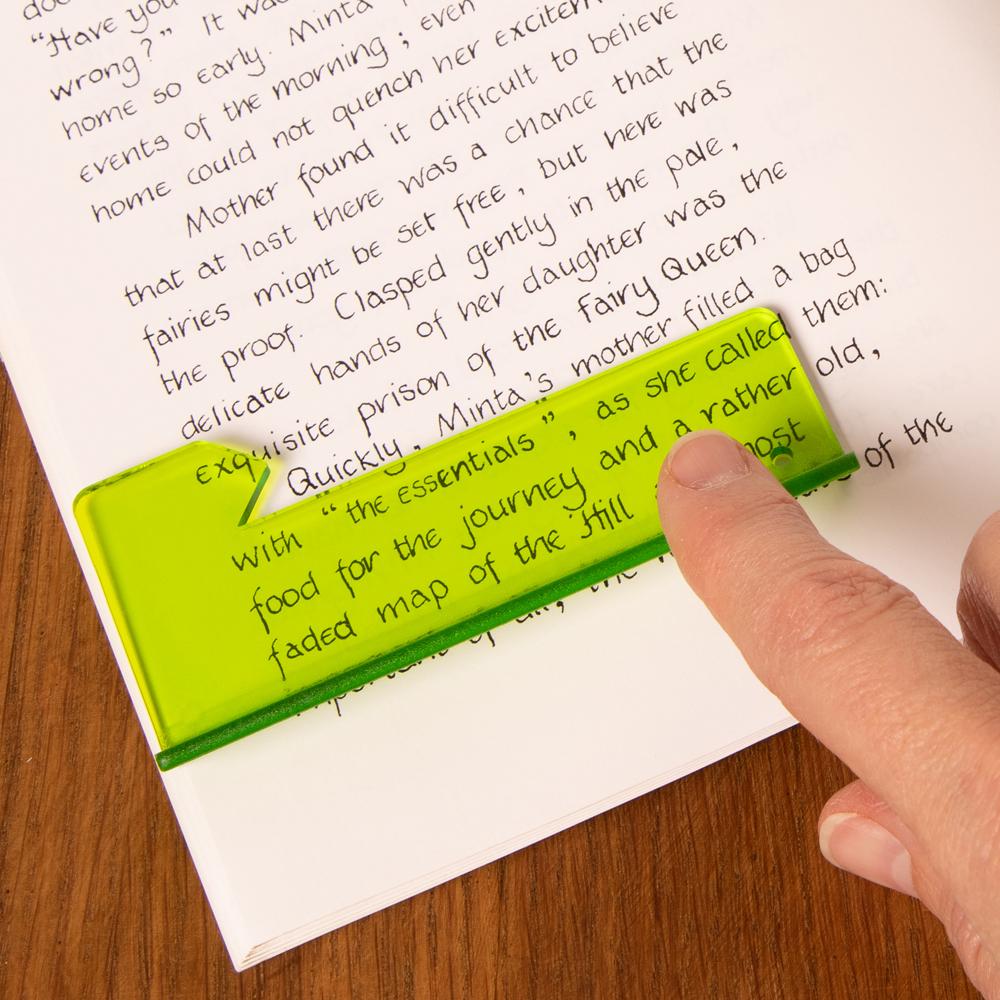 “Have you
wrong?” It was
home so early. Minta
events of the morning; even
home could not quench her
Mother found it difficult to believe
that at last there was a chance that the
fairies might be set free, but here was
the proof. Clasped gently in the pale,
delicate hands of her daughter was the
exquisite prison of the Fairy Queen.
Quickly, Minta's mother filled a bag
with “the essentials”, as she called them:
food for the journey and a rather old,
faded map of the Hill
of the